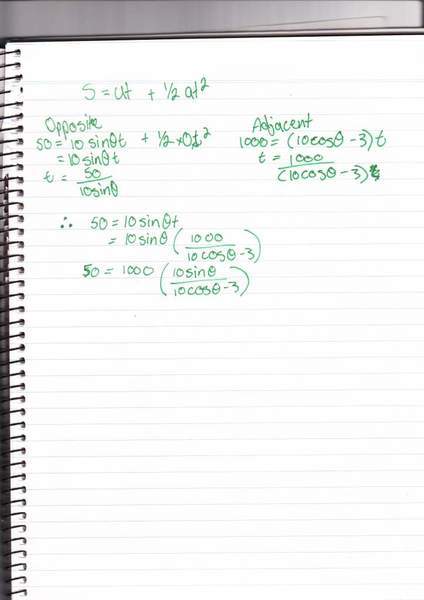 S = ut + 1/2 at²
Opposite
50 = 10 sinθt + 1/2 × 0t²
= 10 sinθt
t = 50 / 10sinθ
Adjacent
1000 = (10cosθ - 3) t
t = 1000 / (10cosθ - 3)
∴ 50 = 10 sinθt
= 10 sinθ (1000 / 10cosθ - 3)
50 = 1000 (10sinθ / 10cosθ - 3)